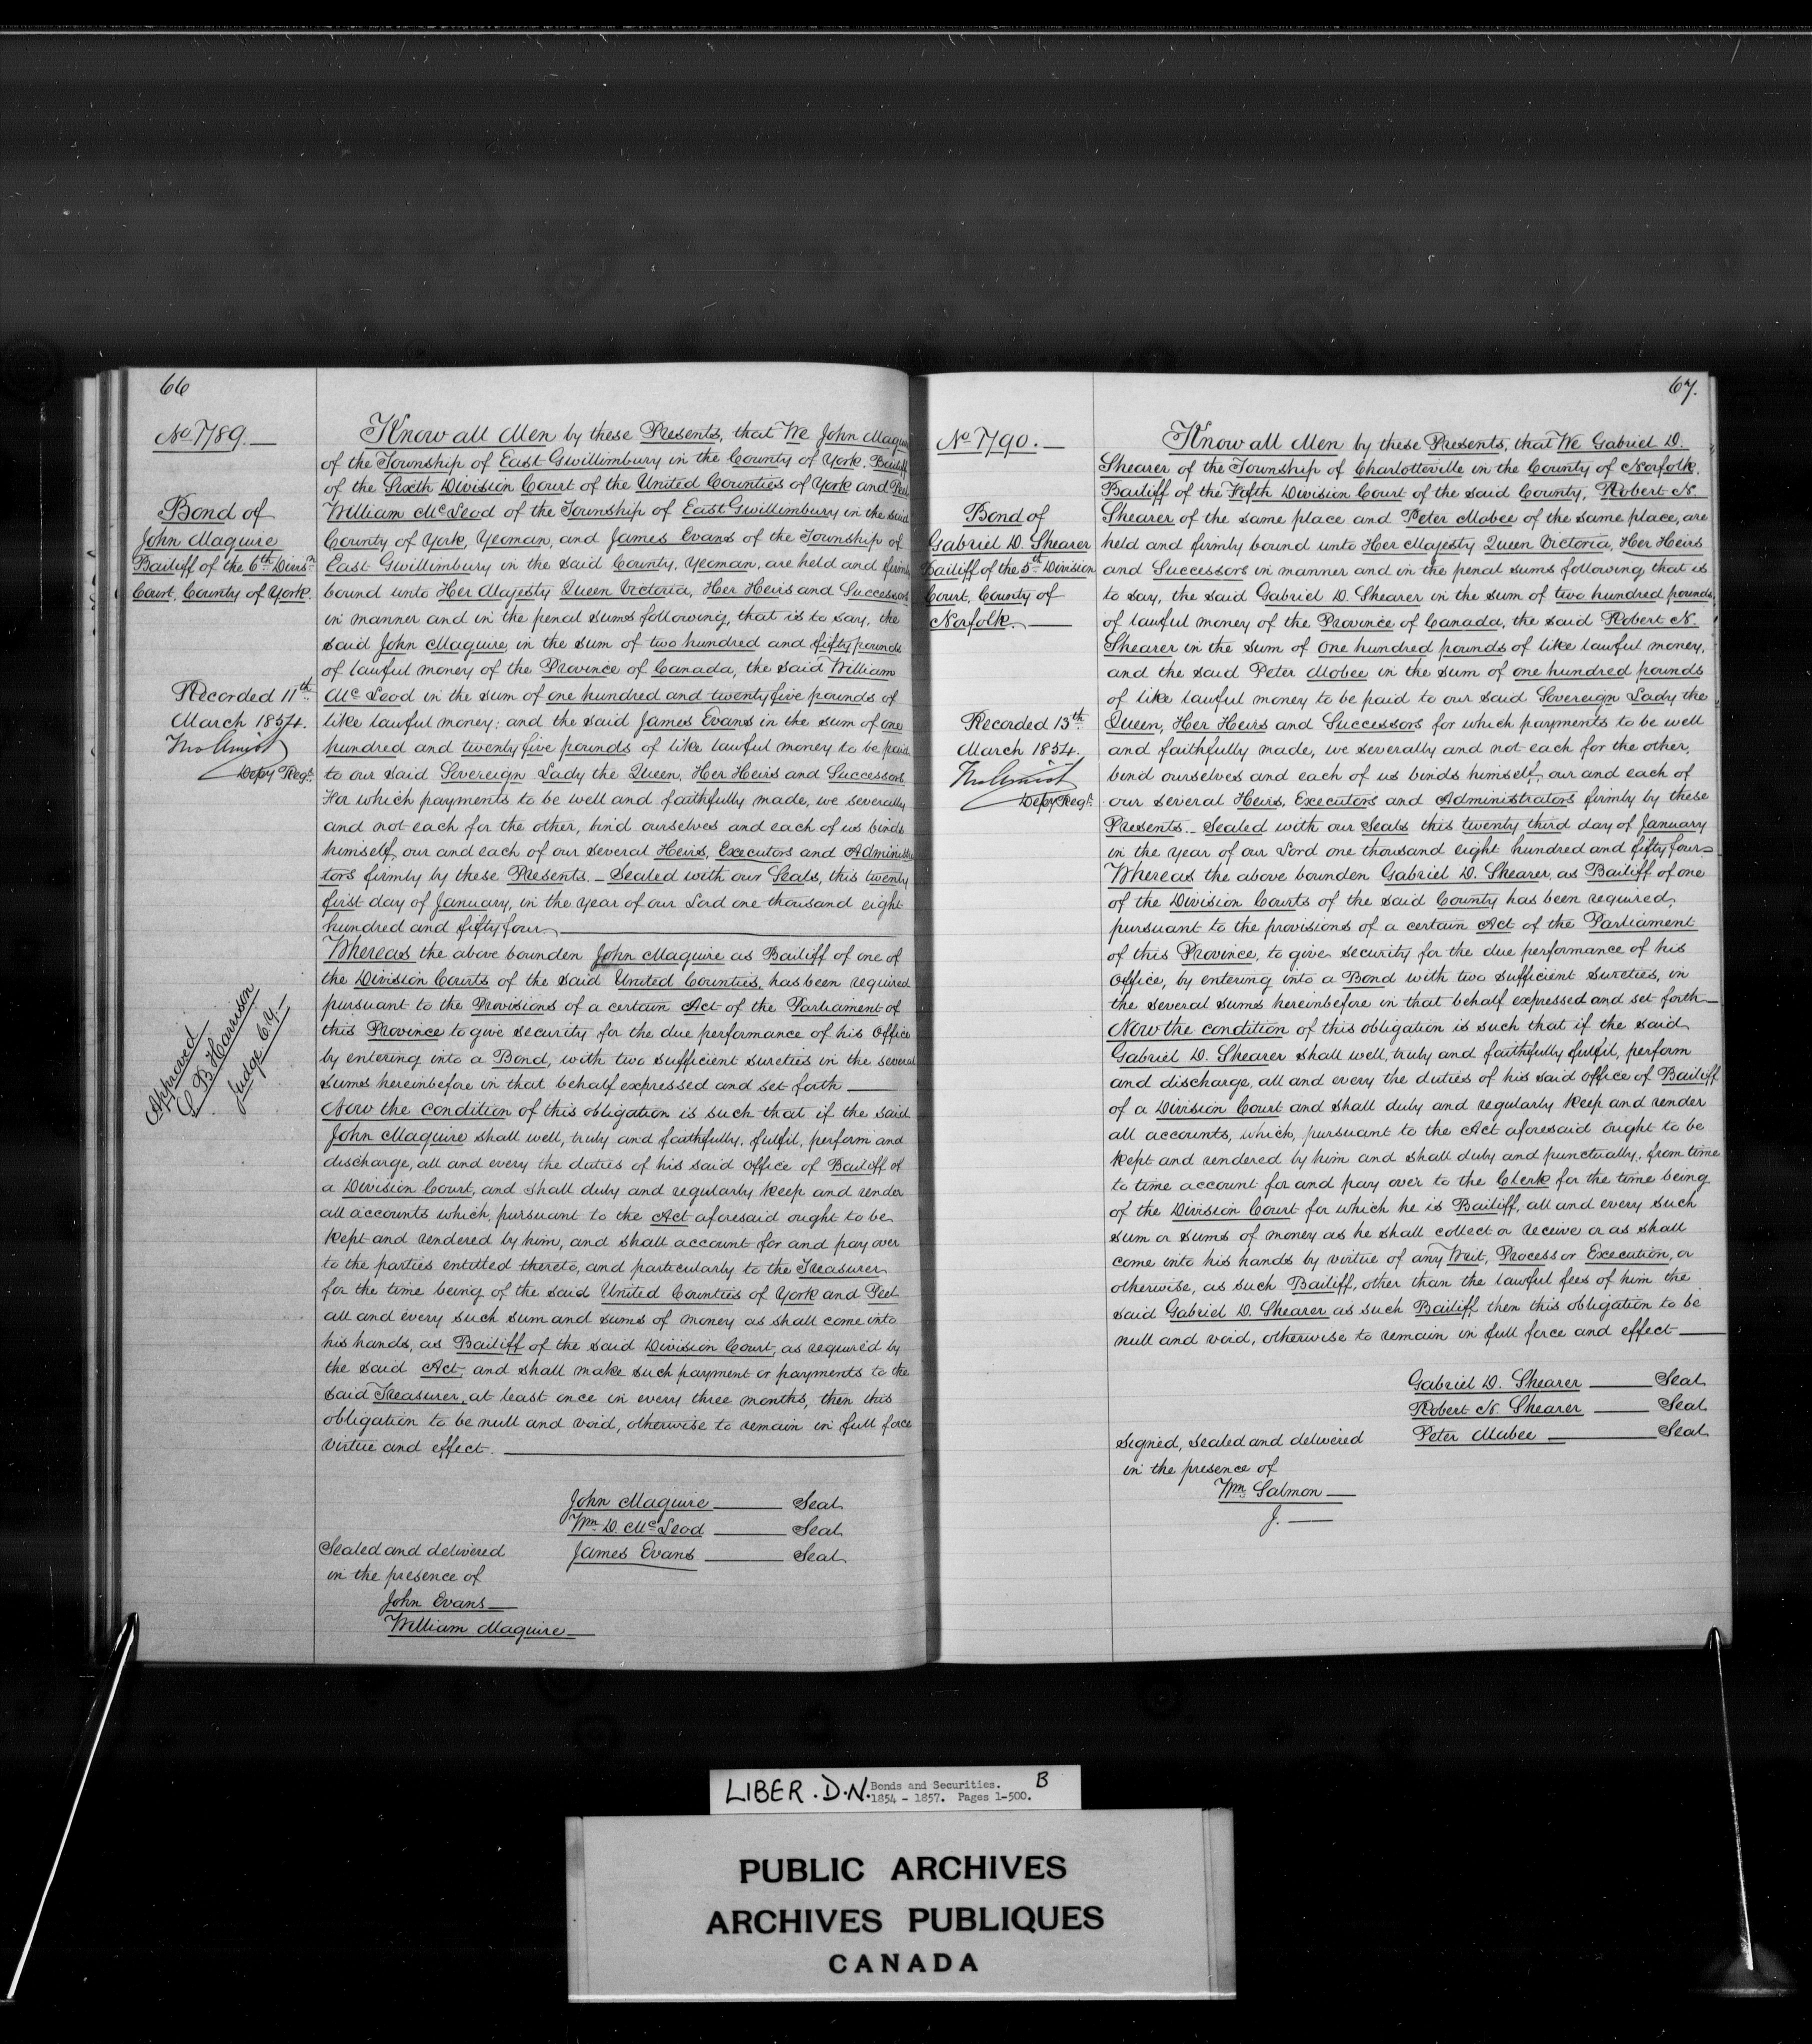 66
No 7789.
Bond of
John Maguire
Bailiff of the 6th Divisn
Court, County of York.
Recorded 11th
March 1854.
Depy Regr.
Approved
S. B. Harrison
Judge C.Y.
Know all Men by these Presents, that We John Maguire
of the Township of East Gwillimbury in the County of York, Bailiff
of the Sixth Division Court of the United Counties of York and Peel
William McLeod of the Township of East Gwillimbury in the said
County of York, Yeoman, and James Evans of the Township of
East Gwillimbury in the said County, Yeoman, are held and firmly
bound unto Her Majesty Queen Victoria, Her Heirs and Successors
in manner and in the penal sums following, that is to say, the
said John Maguire, in the sum of two hundred and fifty pounds
of lawful money of the Province of Canada, the said William
McLeod in the sum of one hundred and twenty five pounds of
like lawful money: and the said James Evans in the sum of one
hundred and twenty five pounds of like lawful money to be paid
to our said Sovereign Lady the Queen, Her Heirs and Successors
For which payments to be well and faithfully made, we severally
and not each for the other, bind ourselves and each of us binds
himself, our and each of our several Heirs, Executors and Administra
tors firmly by these Presents. _ Sealed with our Seals, this twenty
first day of January, in the year of our Lord one thousand eight
hundred and fifty four
Whereas the above bounden John Maguire as Bailiff of one of
the Division Courts of the said United Counties, has been required
pursuant to the Provisions of a certain Act of the Parliament of
this Province to give security for the due performance of his Office
by entering into a Bond, with two sufficient sureties in the several
sums hereinbefore in that behalf expressed and set forth
Now the condition of this obligation is such that if the said
John Maguire shall well, truly and faithfully, fulfil, perform and
discharge, all and every the duties of his said office of Bailiff of
a Division Court, and shall duly and regularly keep and render
all accounts which, pursuant to the Act aforesaid ought to be
kept and rendered by him, and shall account for and pay over
to the parties entitled thereto, and particularly to the Treasurer
for the time being of the said United Counties of York and Peel
all and every such sum and sums of money as shall come into
his hands, as Bailiff of the said Division Court, as required by
the said Act, and shall make such payment or payments to the
said Treasurer, at least once in every three months, then this
obligation to be null and void, otherwise to remain in full force
virtue and effect.
John Maguire Seal
Wm D. McLeod Seal
James Evans Seal
Sealed and delivered
in the presence of
John Evans
William Maguire
67.
No 7790.
Bond of
Gabriel D. Shearer
Bailiff of the 5th Division
Court, County of
Norfolk.
Recorded 13th
March 1854.
Depy Regr.
Know all Men by these Presents, that We Gabriel D.
Shearer of the Township of Charlotteville in the County of Norfolk,
Bailiff of the Fifth Division Court of the said County, Robert N.
Shearer of the same place and Peter Mabee of the same place, are
held and firmly bound unto Her Majesty Queen Victoria, Her Heirs
and Successors in manner and in the penal sums following that is
to say, the said Gabriel D. Shearer in the sum of two hundred pounds
of lawful money of the Province of Canada, the said Robert N.
Shearer in the sum of One hundred pounds of like lawful money,
and the said Peter Mobee in the sum of one hundred pounds
of like lawful money to be paid to our said Sovereign Lady the
Queen, Her Heirs and Successors for which payments to be well
and faithfully made, we severally and not each for the other,
bind ourselves and each of us binds himself, our and each of
our several Heirs, Executors and Administrators firmly by these
Presents. _ Sealed with our Seals this twenty third day of January
in the year of our Lord one thousand eight hundred and fifty four=
Whereas the above bounden Gabriel D. Shearer, as Bailiff of one
of the Division Courts of the said County has been required,
pursuant to the provisions of a certain Act of the Parliament
of this Province, to give security for the due performance of his
Office, by entering into a Bond with two sufficient sureties, in
the several sums hereinbefore in that behalf expressed and set forth
Now the condition of this obligation is such that if the said
Gabriel D. Shearer shall well, truly and faithfully fulfil, perform
and discharge, all and every the duties of his said office of Bailiff
of a Division Court and shall duly and regularly keep and render
all accounts, which, pursuant to the Act aforesaid ought to be
kept and rendered by him and shall duly and punctually, from time
to time account for and pay over to the Clerk for the time being
of the Division Court for which he is Bailiff, all and every such
sum or sums of money as he shall collect or receive or as shall
come into his hands by virtue of any Writ, Process or Execution, or
otherwise, as such Bailiff, other than the lawful fees of him the
said Gabriel D. Shearer as such Bailiff then this obligation to be
null and void, otherwise to remain in full force and effect
Gabriel D. Shearer Seal
Robert N. Shearer Seal
Peter Mabee Seal
Signed, sealed and delivered
in the presence of
Wm Salmon
J.
LIBER . D.N. Bonds and Securities. B
1854 - 1857. Pages 1-500.
PUBLIC ARCHIVES
ARCHIVES PUBLIQUES
CANADA